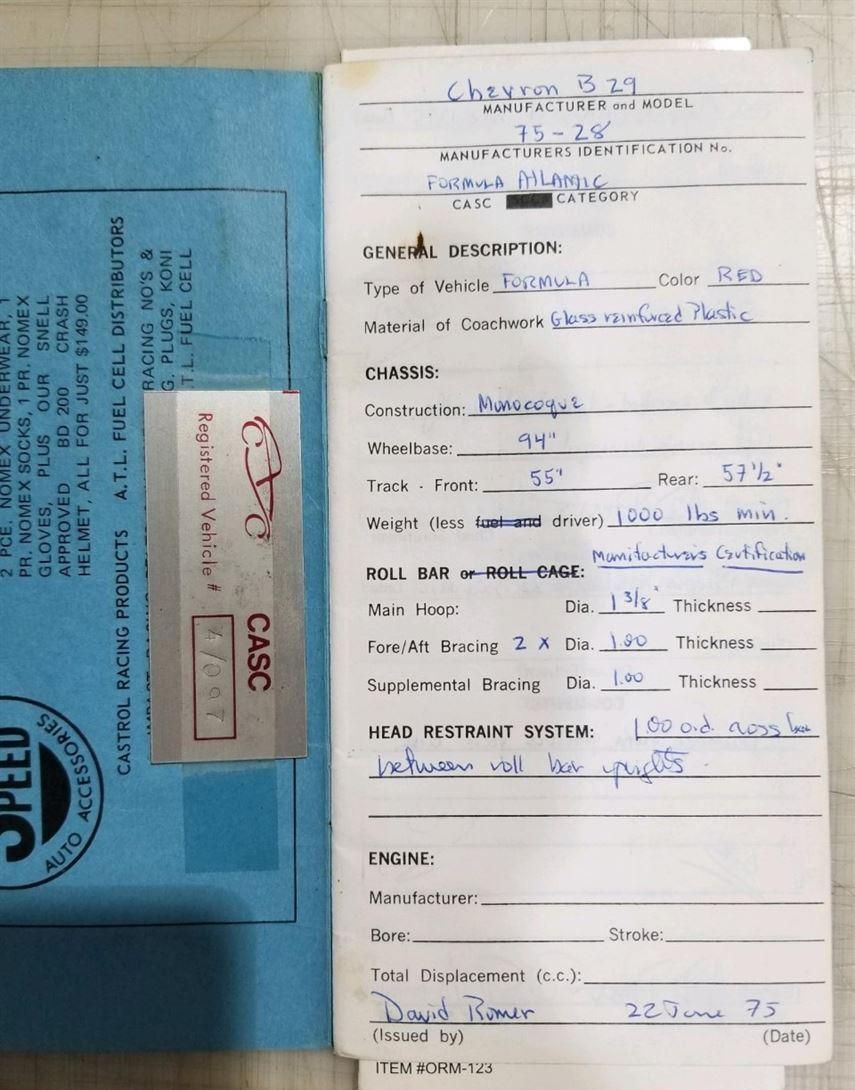 2 PCE. NOMEX UNDERWEAR, 1
PR. NOMEX SOCKS, 1 PR. NOMEX
GLOVES, PLUS OUR SNELL
APPROVED BD 200 CRASH
HELMET, ALL FOR JUST $149.00
CASTROL RACING PRODUCTS A.T.L. FUEL CELL DISTRIBUTORS
RACING NO'S &
G. PLUGS, KONI
T.L. FUEL CELL
SPEED
AUTO ACCESSORIES
Registered Vehicle #
CASC
4/097
Chevron B 29
MANUFACTURER and MODEL
75-28
MANUFACTURERS IDENTIFICATION No.
FORMULA ATLANTIC
CASC CATEGORY
GENERAL DESCRIPTION:
Type of Vehicle FORMULA Color RED
Material of Coachwork Glass reinforced Plastic
CHASSIS:
Construction: Monocoque
Wheelbase: 94"
Track - Front: 55" Rear: 57 1/2"
Weight (less fuel and driver) 1000 lbs min.
Manifacturers Certification
ROLL BAR or ROLL CAGE:
Main Hoop: Dia. 1 3/8" Thickness
Fore/Aft Bracing 2 X Dia. 1.00 Thickness
Supplemental Bracing Dia. 1.00 Thickness
HEAD RESTRAINT SYSTEM: 1.00 o.d. cross bar
between roll bar uprights.
ENGINE:
Manufacturer:
Bore: Stroke:
Total Displacement (c.c.):
David Romer 22 June 75
(Issued by) (Date)
ITEM #ORM-123